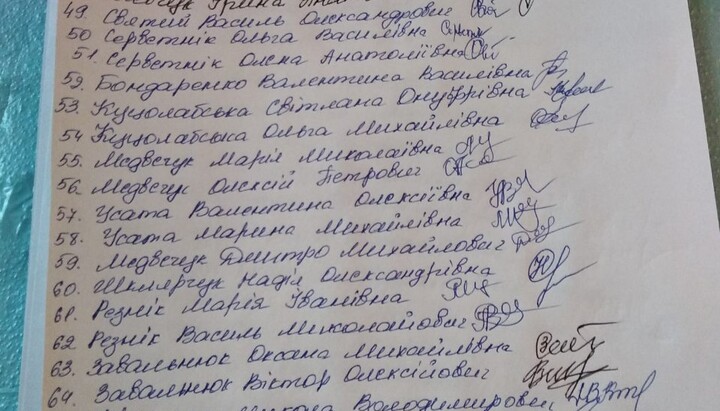 Ірина
49. Святий Василь Олександрович
50 Серветнік Ольга Василівна
51. Серветнік Олена Анатоліївна
59. Бондаренко Валентина Василівна
53. Куцолабська Світлана Онуфріївна
54 Куцолабська Ольга Михайлівна
55. Медвечук Марія Миколаївна
56. Медвечук Олексій Петрович
57. Усата Валентина Олексіївна
58. Усата Марина Михайлівна
59. Медвечук Дмитро Михайлович
60. Шклярчук Надія Олександрівна
61. Резнік Марія Іванівна
62 Резнік Василь Миколайович
63. Завальнюк Оксана Михайлівна
64. Завалнюк Віктор Олексійович
Микола Володимирович